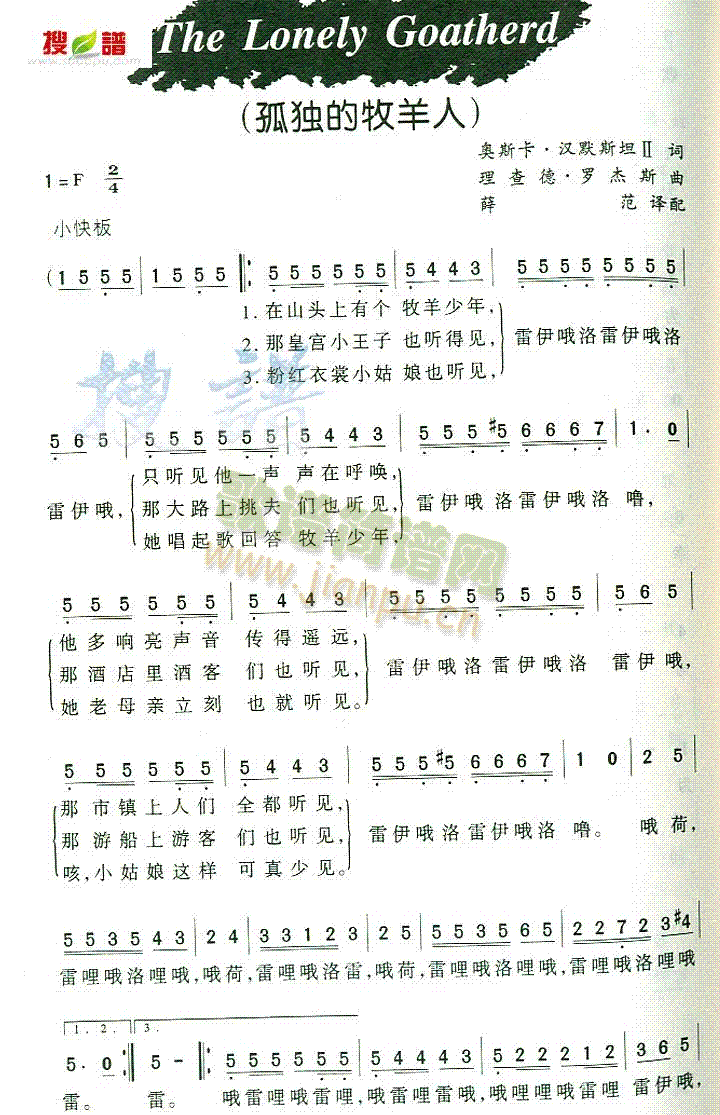 搜谱
www.sooopu.com
The Lonely Goatherd
(孤独的牧羊人)
奥斯卡·汉默斯坦Ⅱ 词
1=F 2/4
理查德·罗杰斯 曲
薛范 译配
小快板
(1 5 5 5 | 1 5 5 5 ‖: 5 5 5 5 5 5 5 | 5 4 4 3 | 5 5 5 5 5 5 5 5 |
1. 在山头上有个 牧羊少年,
2. 那皇宫小王子 也听得见, 雷伊哦洛雷伊哦洛
3. 粉红衣裳小姑 娘也听见,
5 6 5 | 5 5 5 5 5 5 5 | 5 4 4 3 | 5 5 5 #5 6 6 6 7 | 1· 0 |
只听见他一声 声在呼唤,
雷伊哦, 那大路上挑夫 们也听见, 雷伊哦 洛雷伊哦洛 噜,
她唱起歌回答 牧羊少年,
歌谱简谱网
www.jianpu.cn
5 5 5 5 5 5 5 | 5 4 4 3 | 5 5 5 5 5 5 5 5 | 5 6 5 |
他多响亮声音 传得遥远,
那酒店里酒客 们也听见, 雷伊哦洛雷伊哦洛 雷伊哦,
她老母亲立刻 也就听见。
5 5 5 5 5 5 5 | 5 4 4 3 | 5 5 5 #5 6 6 6 7 | 1 0 | 2 5 |
那市镇上人们 全都听见,
那游船上游客 们也听见, 雷伊哦洛雷伊哦洛 噜。 哦荷,
咳,小姑娘这样 可真少见。
5 5 3 5 4 3 | 2 4 | 3 3 1 2 3 | 2 5 | 5 5 3 5 4 3 | 2 2 7 2 3 #4 |
雷哩哦洛哩哦,哦荷,雷哩哦洛雷,哦荷,雷哩哦洛哩哦,雷哩哦洛哩哦
1. 2. 3.
5· 0 :‖ 5 - ‖: 5 5 5 5 5 5 5 | 5 4 4 4 3 | 5 2 2 2 2 1 2 | 3 6 5 |
雷。 雷。 哦雷哩哦雷哩哦,哦雷哩雷哦,哦雷哩哦雷哩 雷伊哦,